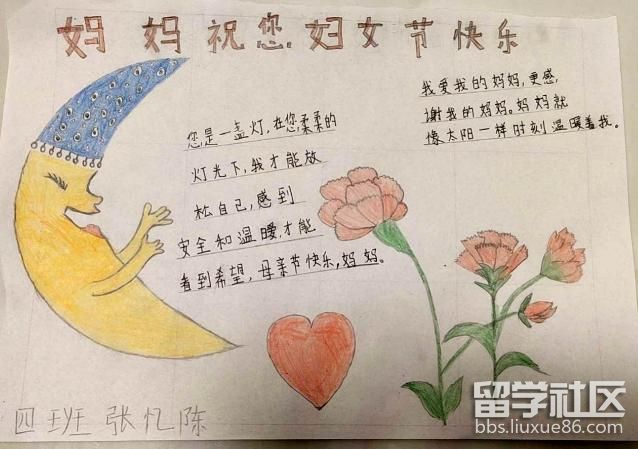 妈妈祝您妇女节快乐
我爱我的妈妈,更感
谢我的妈妈。妈妈就
像太阳一样时刻温暖着我。
您是一盏灯,在您柔柔的
灯光下,我才能放
松自己,感到
安全和温暖,才能
看到希望,母亲节快乐,妈妈。
四班 张忆陈
留学社区
bbs.liuxue86.com